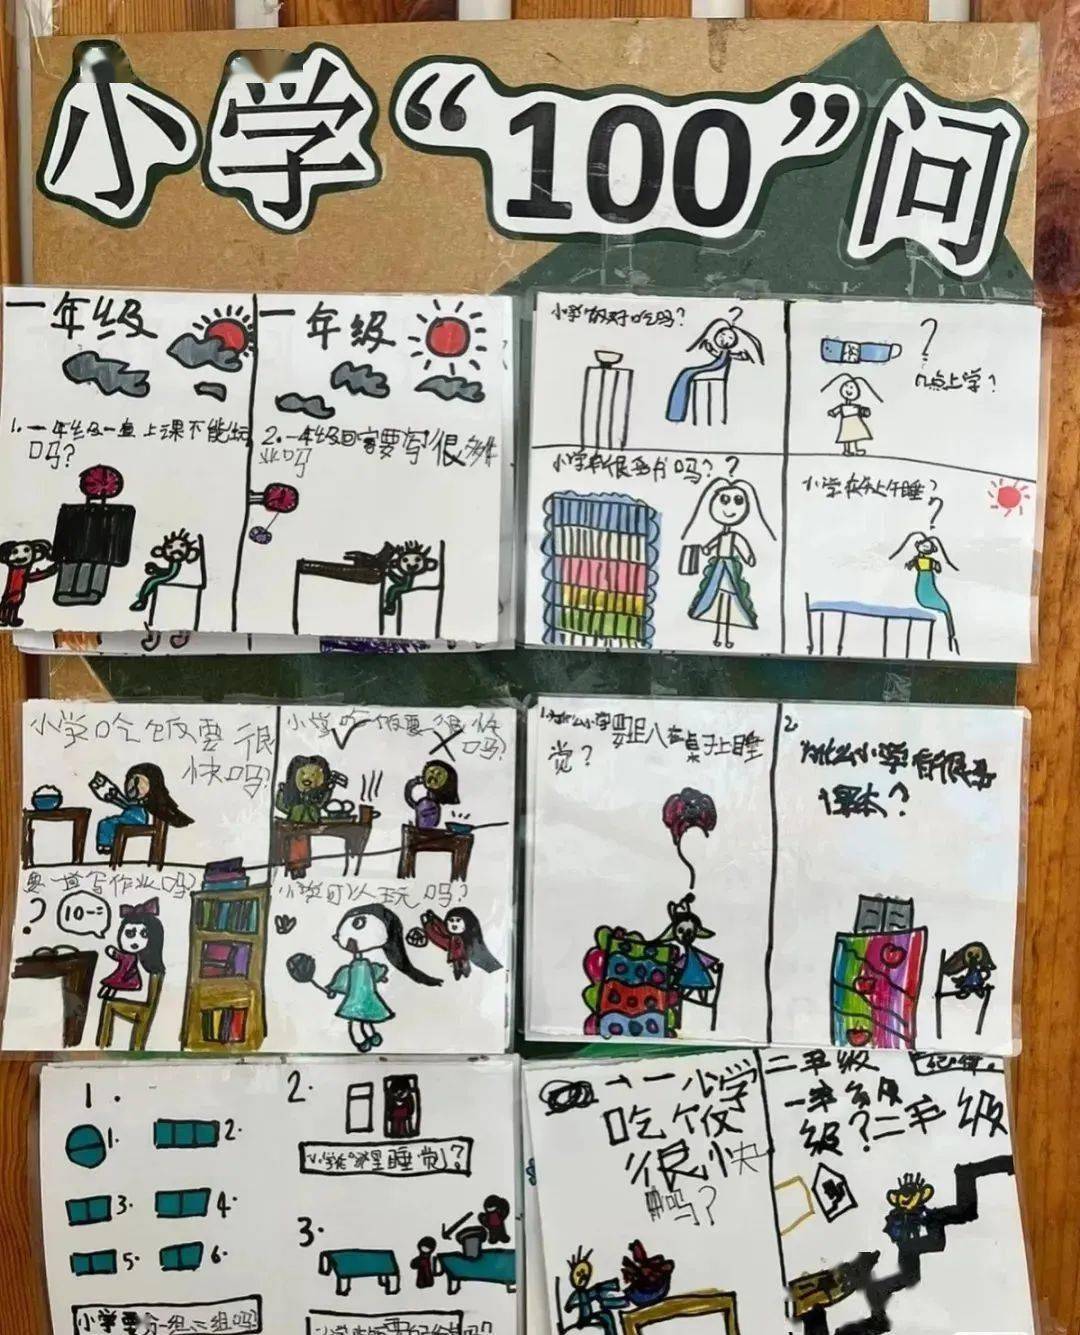 小学“100”问
一年级
1.一年级一直上课不能玩
吗?
一年级
2.一年级回家要写很多作
业吗
小学饭好吃吗?
?
?
几点上学?
小学有很多书吗??
小学在哪上午睡?
?
小学吃饭要很
快吗?
小学吃饭要很快
吗?
要一直写作业吗?
?
10-=
小学可以玩吗?
1.为什么小学要趴在桌子上睡
觉?
2.
为什么小学有很多
课本?
1.
1.
2.
3.
4.
5.
6.
小学要分一组二组吗?
2.
小学在哪里睡觉?
3.
小学
吃饭
很快
吗?
二年级
一年级
级?二年级